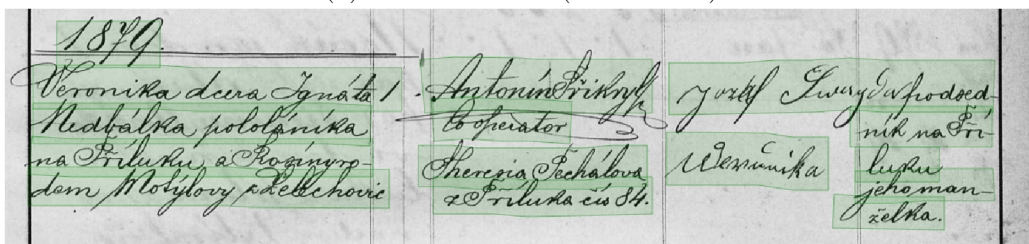 1879.
Veronika dcera Ignáta 1.
Nedbálka pololáníka
na Příluku a Rozíny ro-
dem Motýlovy z Želechovic
Antonín Přikryl
Cooperator
Theresia Pechálova
z Příluka čís 84.
Jozef Šwayda podsed-
ník na Pří-
luku
Weronika jeho man-
želka.